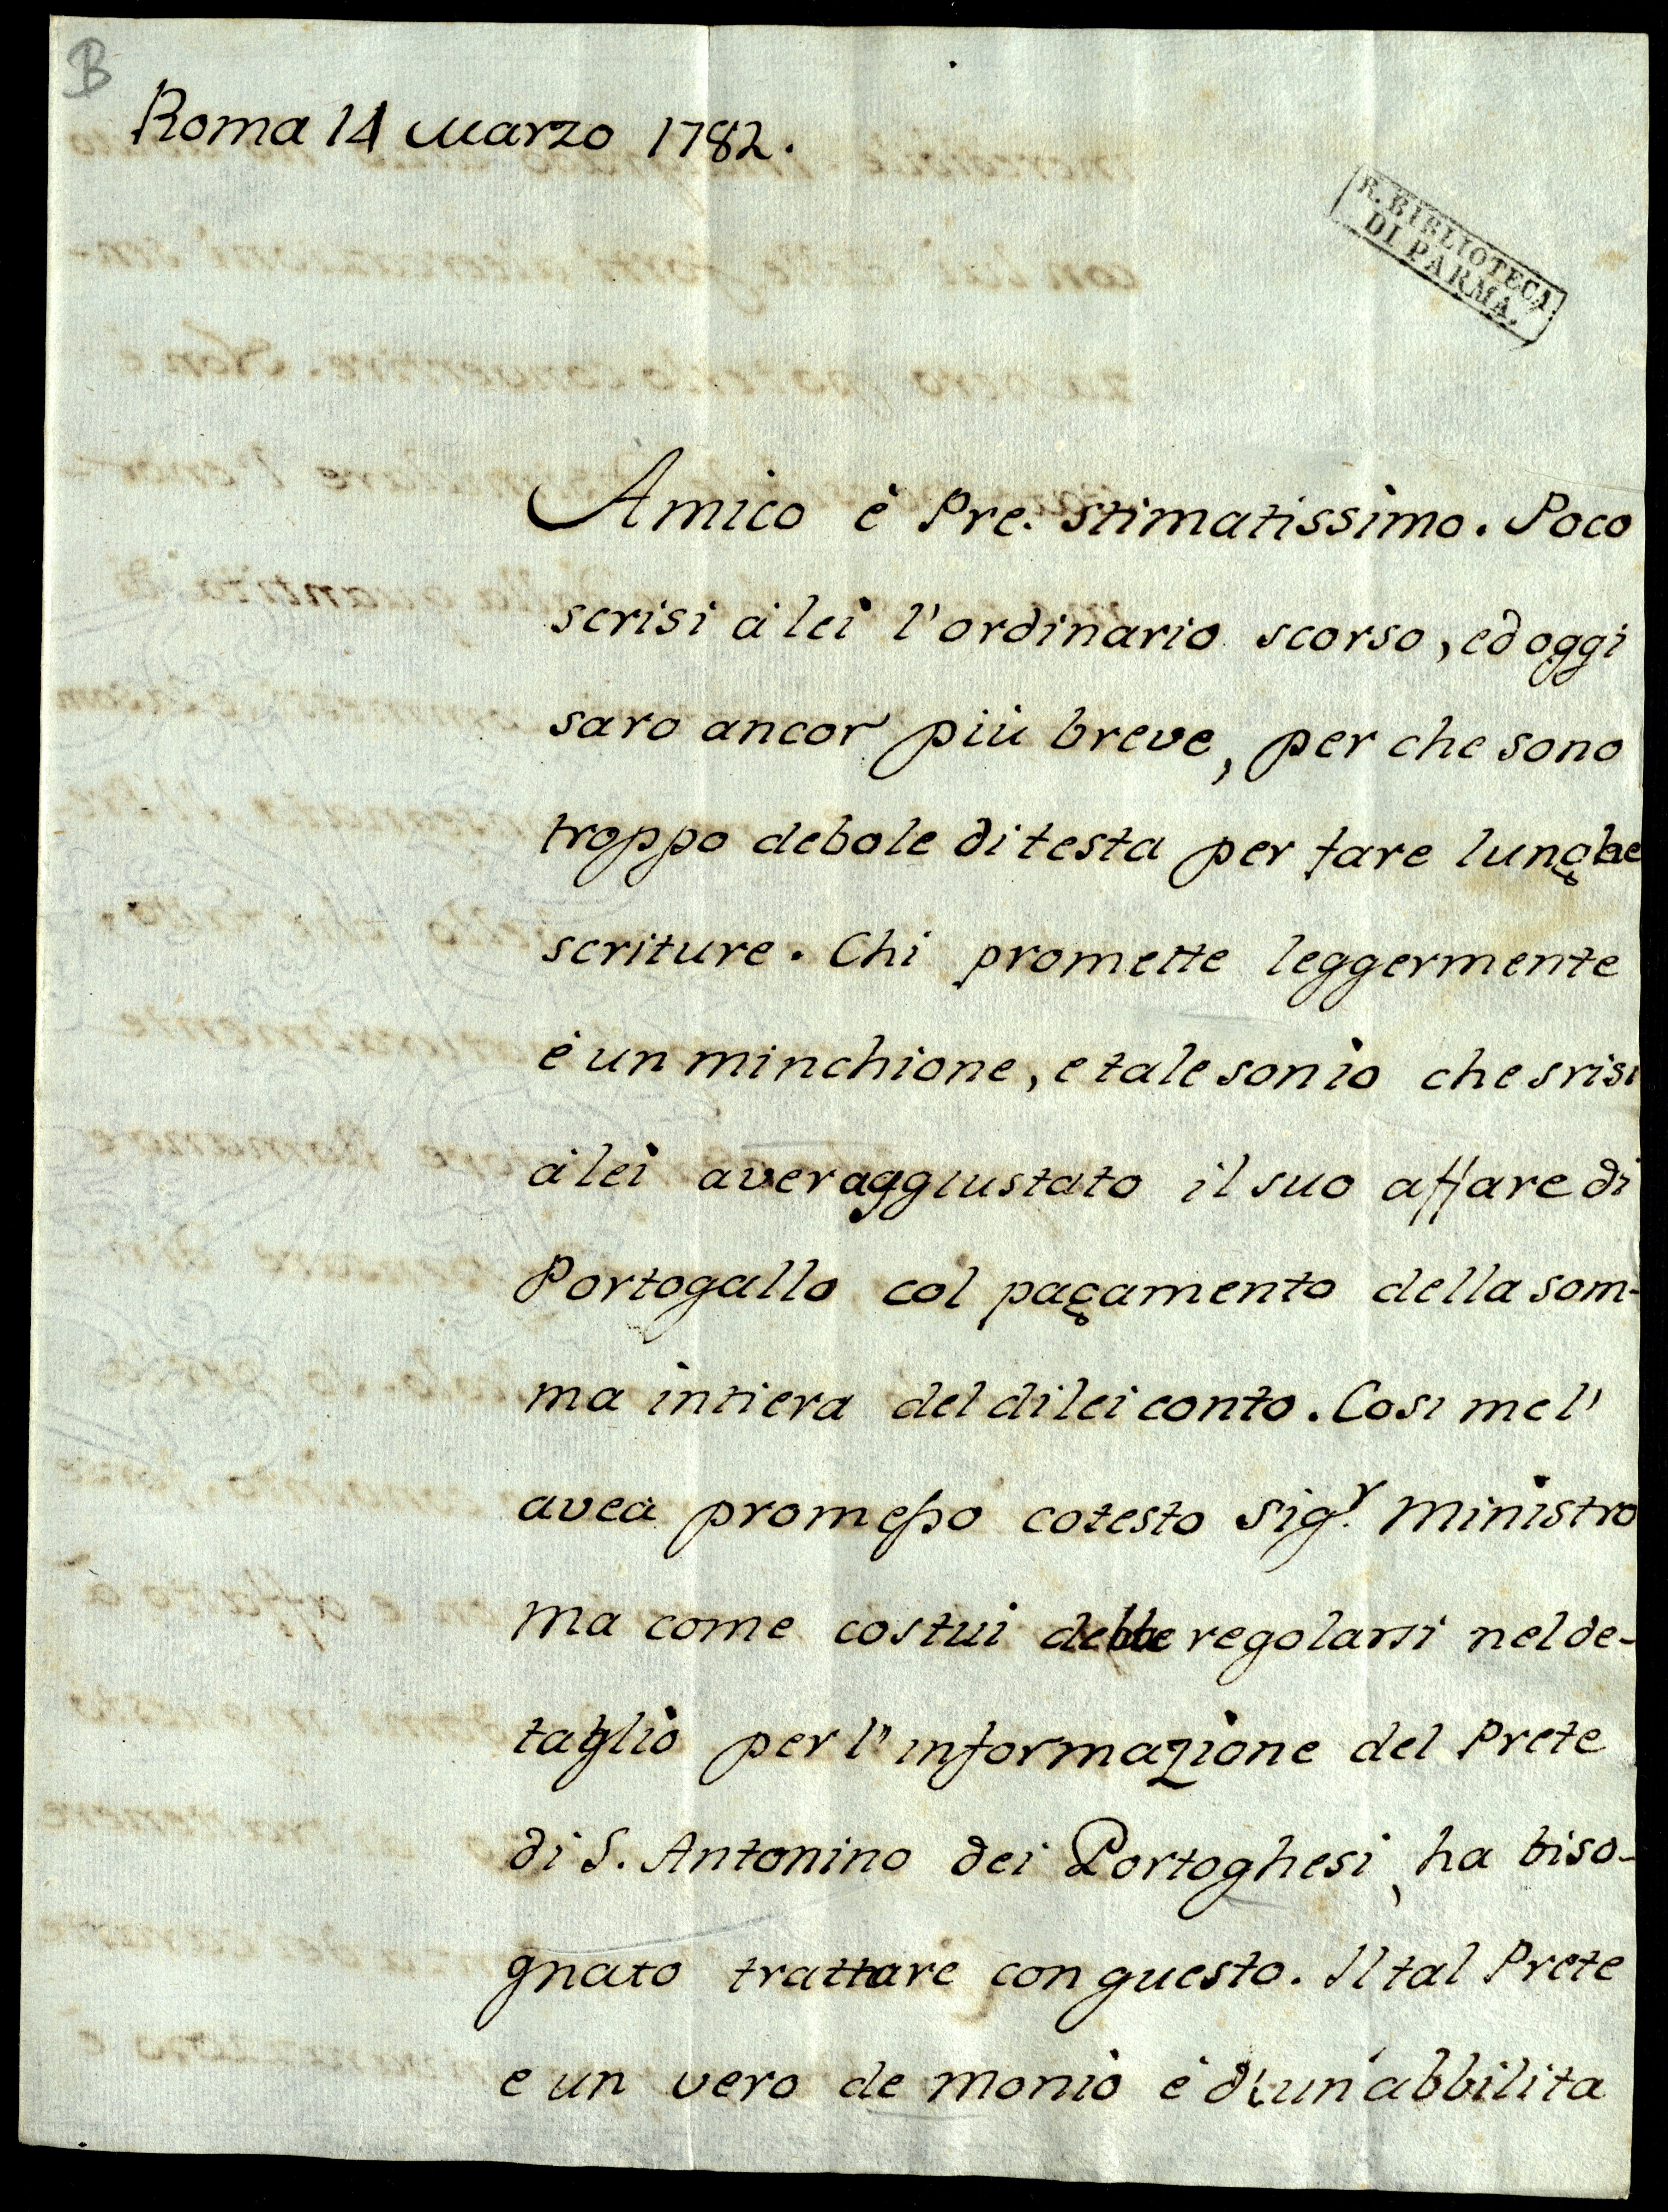 B
Roma 14 Marzo 1782.
R. BIBLIOTECA
DI PARMA.
Amico è Pre. stimatissimo. Poco
scrisi à lei l'ordinario scorso, ed oggi
saro ancor più breve, per che sono
troppo debole di testa per fare lunghe
scriture. Chi promette leggermente
è un minchione, e tale son io che srisi
à lei aver aggiustato il suo affare di
Portogallo col pagamento della som-
ma intiera del di lei conto. Cosi me l'
avea promesso cotesto Sig.r Ministro
ma come costui debbe regolarsi nel de-
taglio per l'informazione del Prete
di S. Antonino dei Portoghesi, ha biso-
gnato trattare con questo. Il tal Prete
e un vero de monio è di un'abbilita